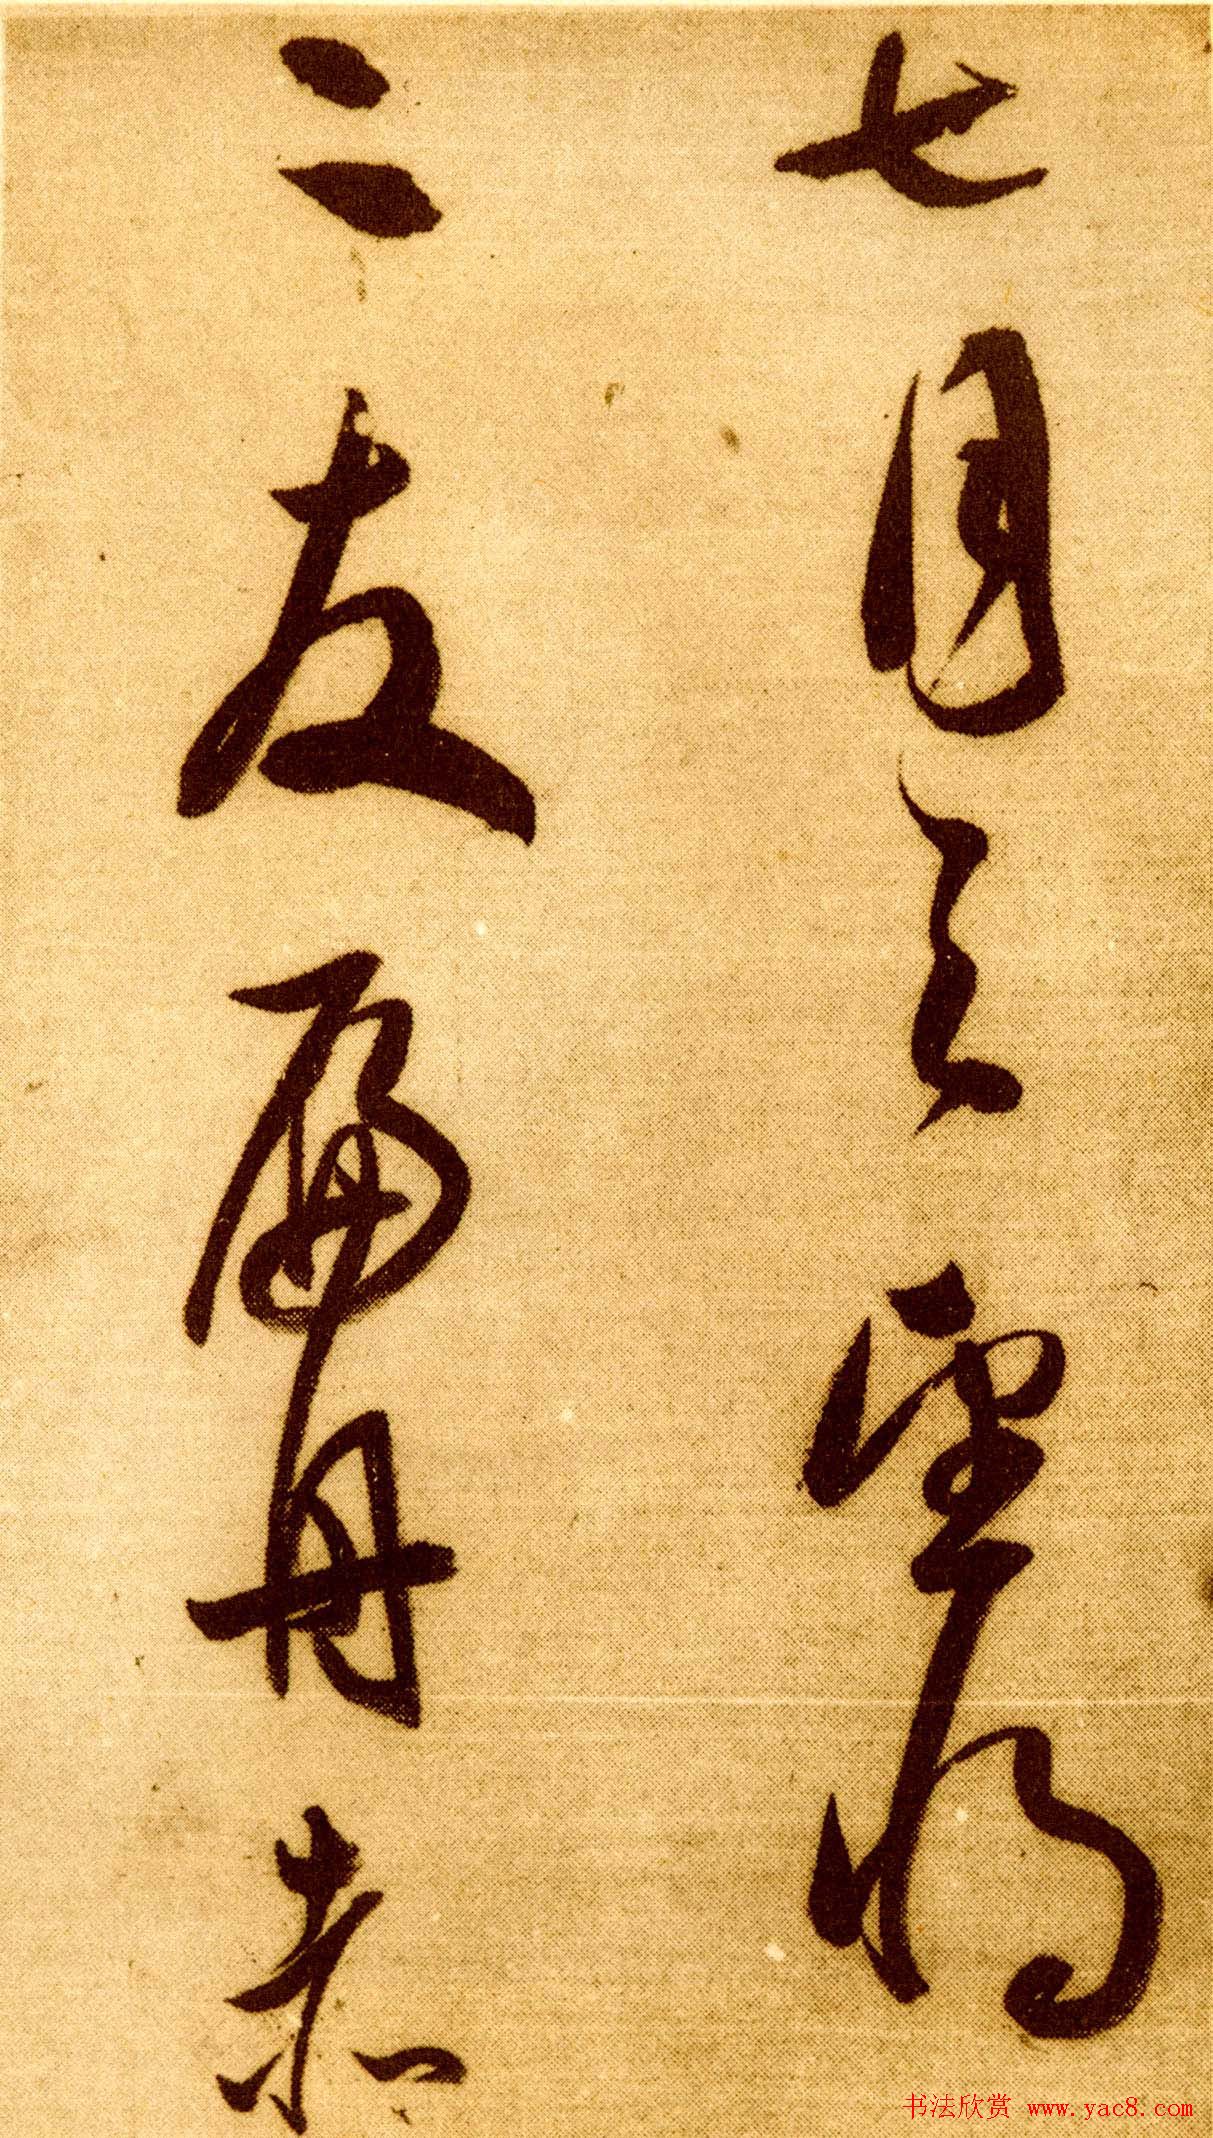 七月之望將
二友扁舟赤
书法欣赏 www.yac8.com